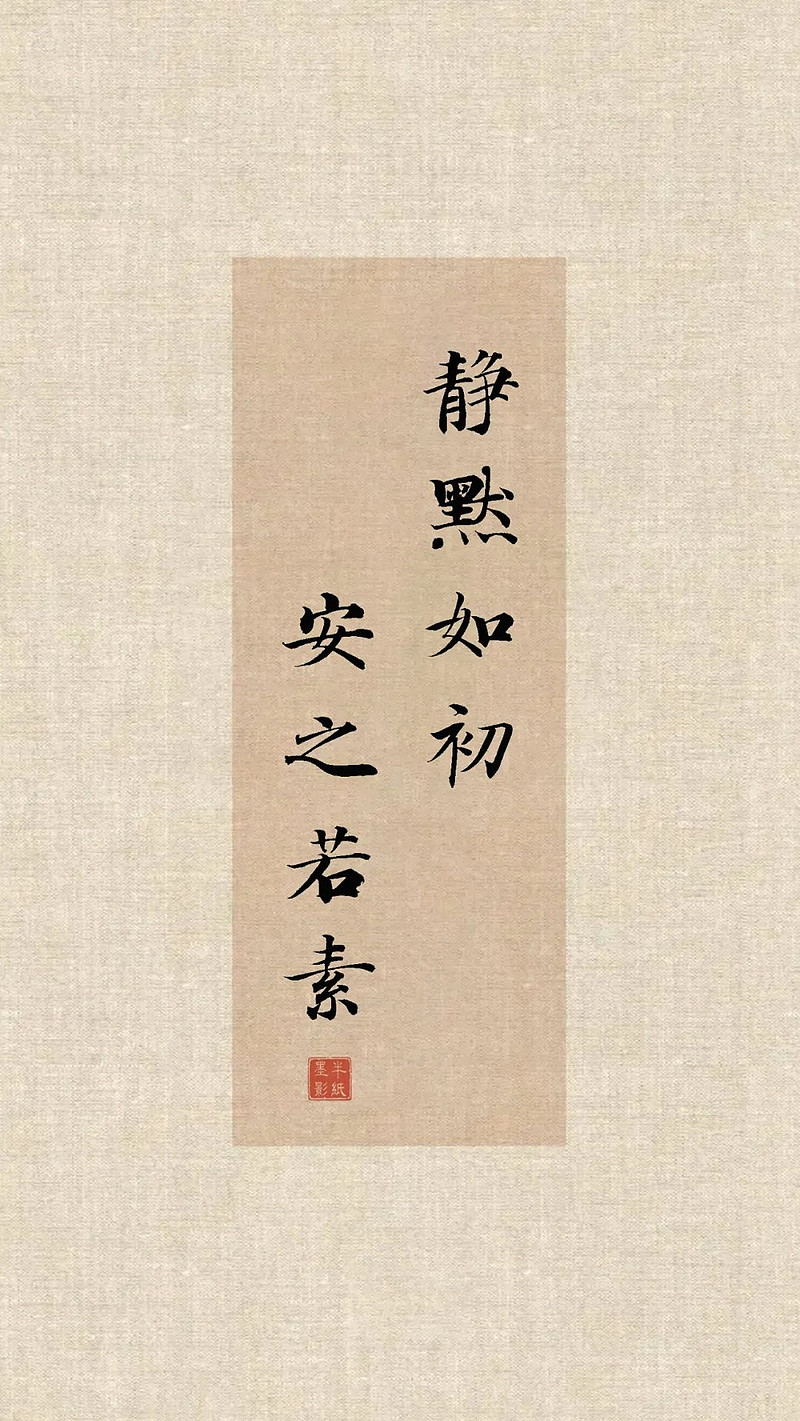 静默如初
安之若素
半紙
墨影